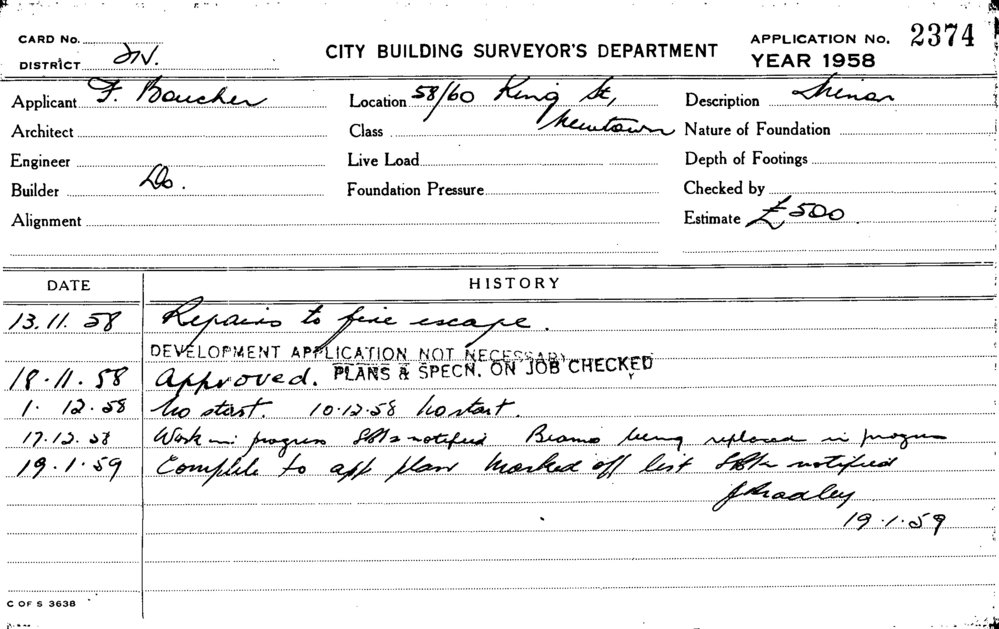 CARD No.
CITY BUILDING SURVEYOR'S DEPARTMENT
APPLICATION No. 2374
DISTRICT
YEAR 1958
Applicant F. Boucher
Location 58/60 King St,
Newtown
Description Minor
Architect
Class
Nature of Foundation
Engineer
Live Load
Depth of Footings
Builder Do.
Foundation Pressure
Checked by
Alignment
Estimate £500
DATE HISTORY
13.11.58 Repairs to fire escape.
DEVELOPMENT APPLICATION NOT NECESSARY
PLANS & SPECN. ON JOB CHECKED
18.11.58 Approved.
1.12.58 No start. 10.12.58 No start.
17.12.58 Work in progress notified Beams being replaced in progress
19.1.59 Complete to app plan Marked off list notified
J Bradley
19.1.59
C OF S 3638